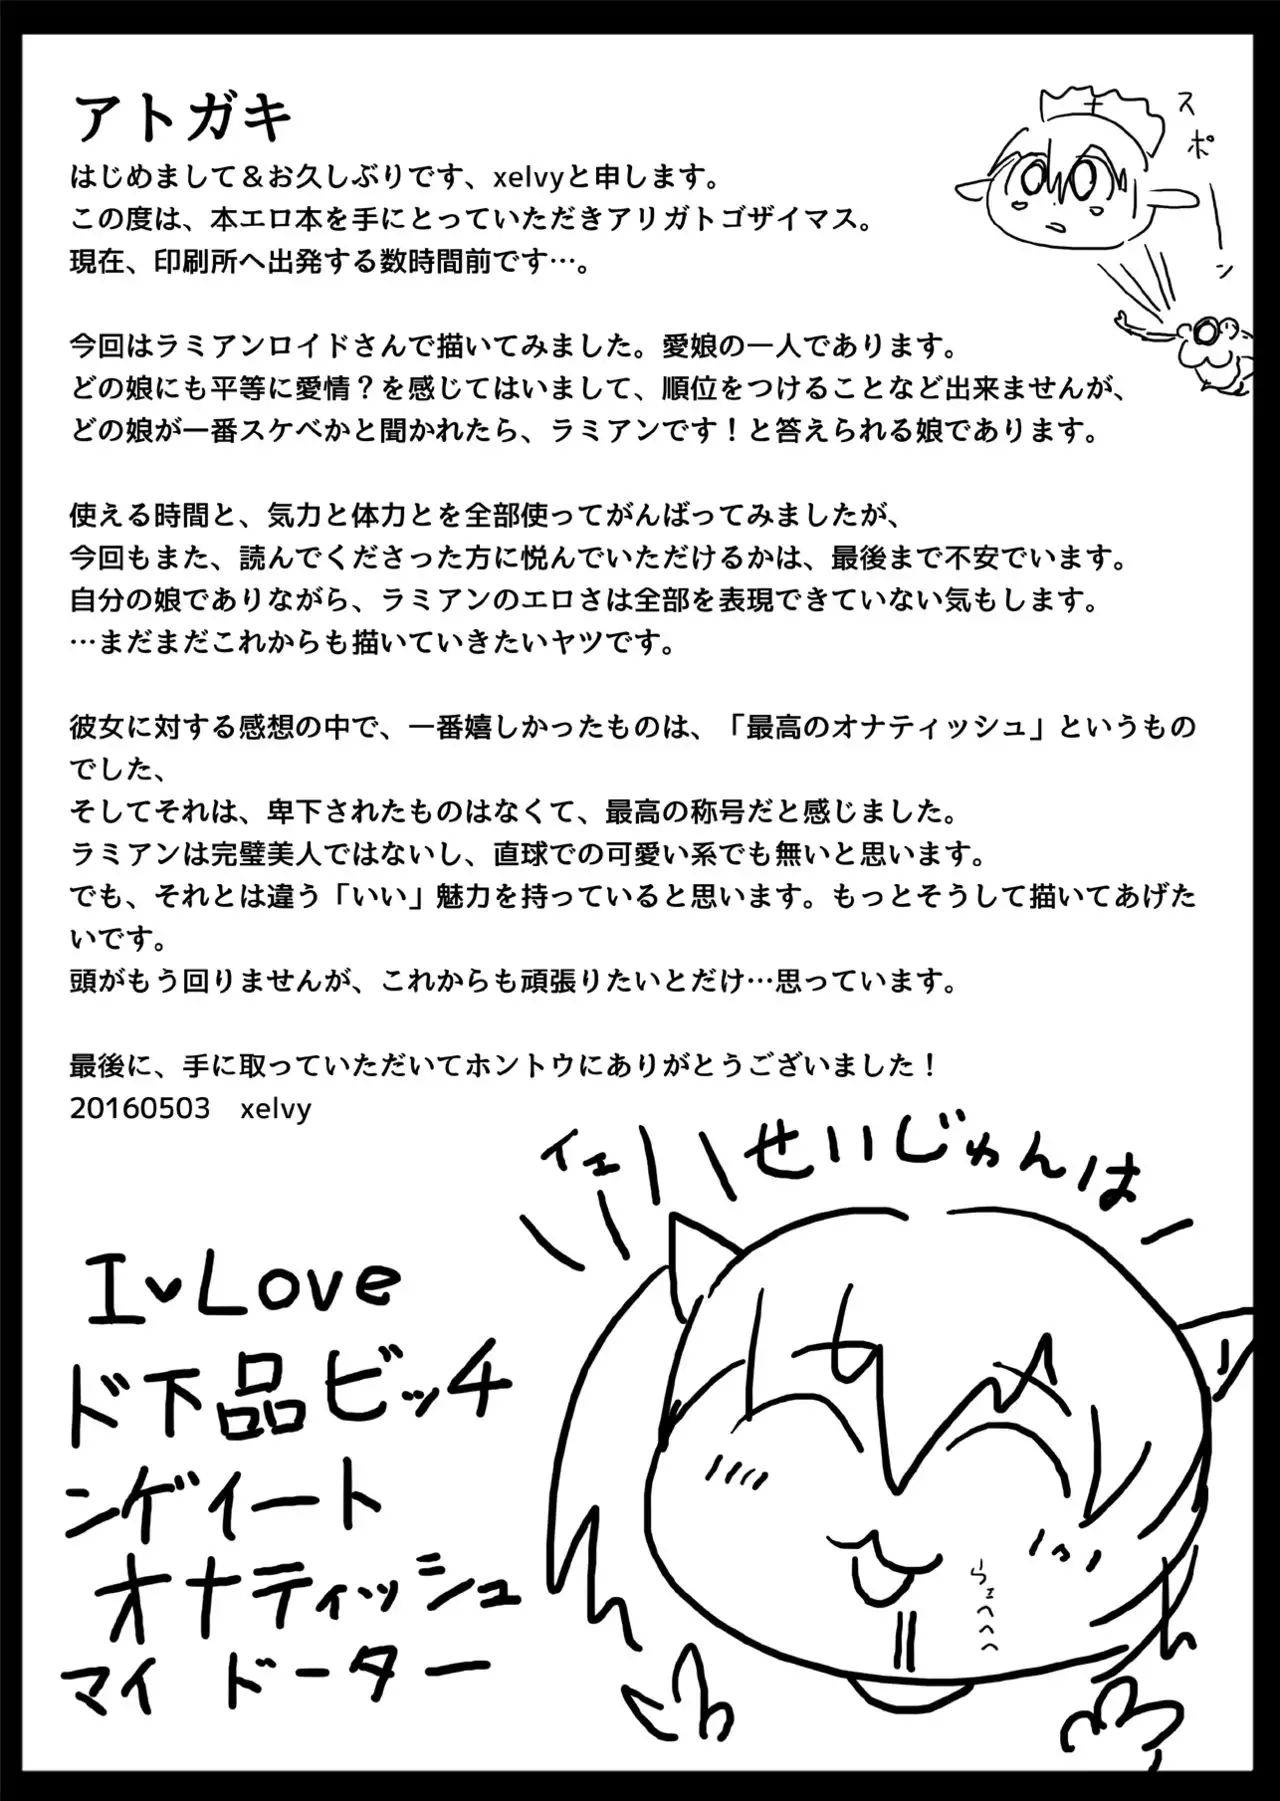 アトガキ
はじめまして＆お久しぶりです、xelvyと申します。
この度は、本エロ本を手にとっていただきアリガトゴザイマス。
現在、印刷所へ出発する数時間前です…。
スポーン
今回はラミアンロイドさんで描いてみました。愛娘の一人であります。
どの娘にも平等に愛情？を感じてはいまして、順位をつけることなど出来ませんが、
どの娘が一番スケベかと聞かれたら、ラミアンです！と答えられる娘であります。
使える時間と、気力と体力とを全部使ってがんばってみましたが、
今回もまた、読んでくださった方に悦んでいただけるかは、最後まで不安でいます。
自分の娘でありながら、ラミアンのエロさは全部を表現できていない気もします。
…まだまだこれからも描いていきたいヤツです。
彼女に対する感想の中で、一番嬉しかったものは、「最高のオナティッシュ」というもの
でした、
そしてそれは、卑下されたものはなくて、最高の称号だと感じました。
ラミアンは完璧美人ではないし、直球での可愛い系でも無いと思います。
でも、それとは違う「いい」魅力を持っていると思います。もっとそうして描いてあげた
いです。
頭がもう回りませんが、これからも頑張りたいとだけ…思っています。
最後に、手に取っていただいてホントウにありがとうございました！
20160503　xelvy
イエーい
せいじゅんはー
I♥Love
ド下品ビッチ
ンゲィート
オナティッシュ
マイ ドーター